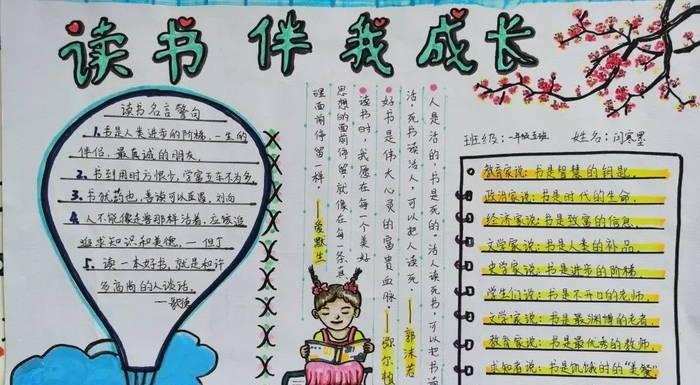 读书伴我成长
班级:一年级五班 姓名:闫寒墨
读书名言警句
1.书是人类进步的阶梯,一生的
伴侣,最真诚的朋友
2.书到用时方恨少,学富五车不为多
3.书犹药也,善读可以医愚.刘向
4.人不能像走兽那样活着,应该追
追求知识和美德.一但丁
5.读一本好书,就是和许
多高尚的人谈话.
—歌德
人是活的,书是死的.活人读死书,可以把书读
活.死书读活人,可以把人读死.
——郭沫若
好书是伟大心灵的富贵血脉.
——弥尔
读书时,我愿在每一个美好
思想的面前停留,就像在每一条真
理面前停留一样.
——爱默生
教育家说:书是智慧的钥匙.
政治家说:书是时代的生命.
经济家说:书是致富的信息.
文学家说:书是人类的补品.
史学家说:书是进步的阶梯.
学生们说:书是不开口的老师.
文学家说:书是最渊博的老者.
教育家说:书是最优秀的教师.
求知者说:书是饥饿时的"美餐"